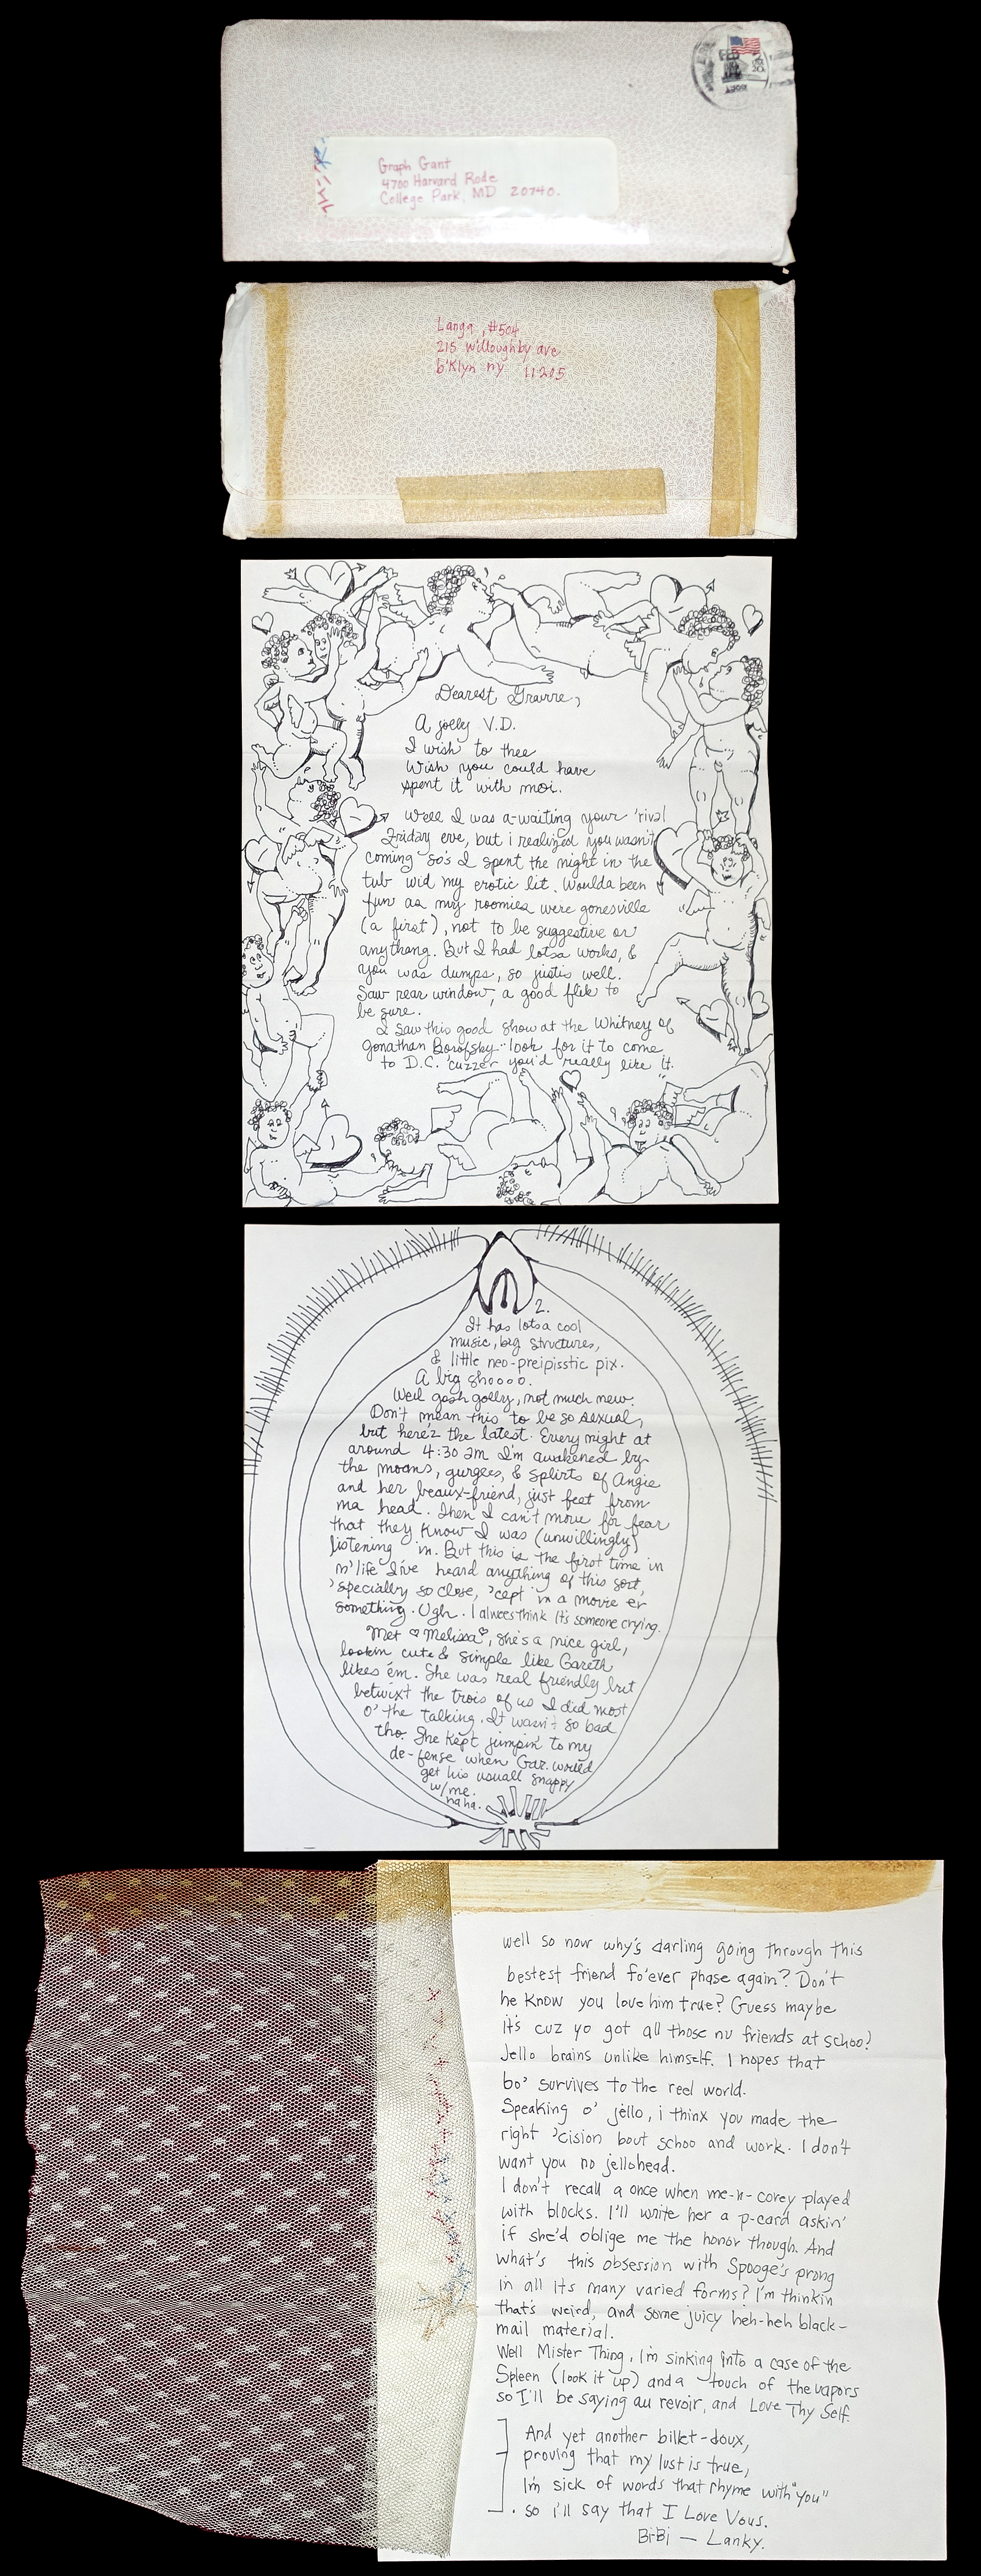 FEB
USA
20c
Graph Gant
4700 Harvard Rode
College Park, MD 20740.
Langa, #504
215 Willoughby ave
b'Klyn ny 11205
Dearest Gravvre,
A jolly V.D.
I wish to thee
Wish you could have
spent it with moi.
Well I was a-waiting your 'rival
Friday eve, but i realized you wasn't
coming so's I spent the night in the
tub wid my erotic lit. Woulda been
fun as my roomies were gonesville
(a first), not to be suggestive or
anythang. But I had lotsa works, &
you was dumps, so justis well.
Saw rear window, a good flik to
be sure.
I saw this good show at the Whitney of
Jonathan Borofsky.. look for it to come
to D.C. 'cuzzer you'd really like it.
2.
It has lotsa cool
music, big structures,
& little neo-preipisstic pix.
A big shoooo.
Well gosh golly, not much new.
Don't mean this to be so sexual,
but here'z the latest. Every night at
around 4:30 am I'm awakened by
the moans, gurgles, & splirts of Angie
and her beaux-friend, just feet from
ma head. Then I can't move for fear
that they know I was (unwillingly)
listening in. But this is the first time in
m'life I've heard anything of this sort,
'specially so close, 'cept in a movie er
something. Ugh. I alwees think it's someone crying.
Met ♡Melissa♡, she's a nice girl,
lookin cute & simple like Gareth
likes 'em. She was real friendly but
betwixt the trois of us I did most
o' the talking. It wasn't so bad
tho. She kept jumpin' to my
de-fense when Gar. would
get his usuall snappy
w/me.
haha.
well so now why's darling going through this
bestest friend fo'ever phase again? Don't
he know you love him true? Guess maybe
it's cuz yo got all those nu friends at schoo?
Jello brains unlike himself. I hopes that
bo' survives to the reel world.
Speaking o' jello, i thinx you made the
right 'cision bout schoo and work. I don't
want you no jellohead.
I don't recall a once when me-n-corey played
with blocks. I'll write her a p-card askin'
if she'd oblige me the honor though. And
what's this obsession with Spooge's prong
in all its many varied forms? I'm thinkin
that's weird, and some juicy heh-heh black-
mail material.
Well Mister Thing, I'm sinking into a case of the
Spleen (look it up) and a touch of the vapors
so I'll be saying au revoir, and Love Thy Self.
And yet another billet-doux,
proving that my lust is true,
I'm sick of words that rhyme with "you"
so i'll say that I Love Vous.
BiBi — Lanky.